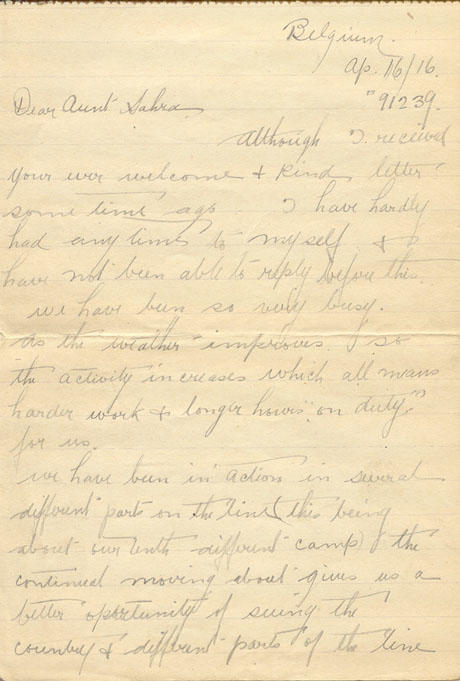 Belgium.
Ap. 16/16.
"91239.
Dear Aunt Sahra
Although I received
your ever welcome & kind letter
some time ago. I have hardly
had any time to myself &
have not been able to reply before this.
we have been so very busy.
As the weather improves so
the activity increases which all means
harder work & longer hours "on duty"
for us.
we have been in action in several
different parts on the line (this being
about our tenth different camp) the
continual moving about gives us a
better oportunity of seeing the
country & different parts of the line